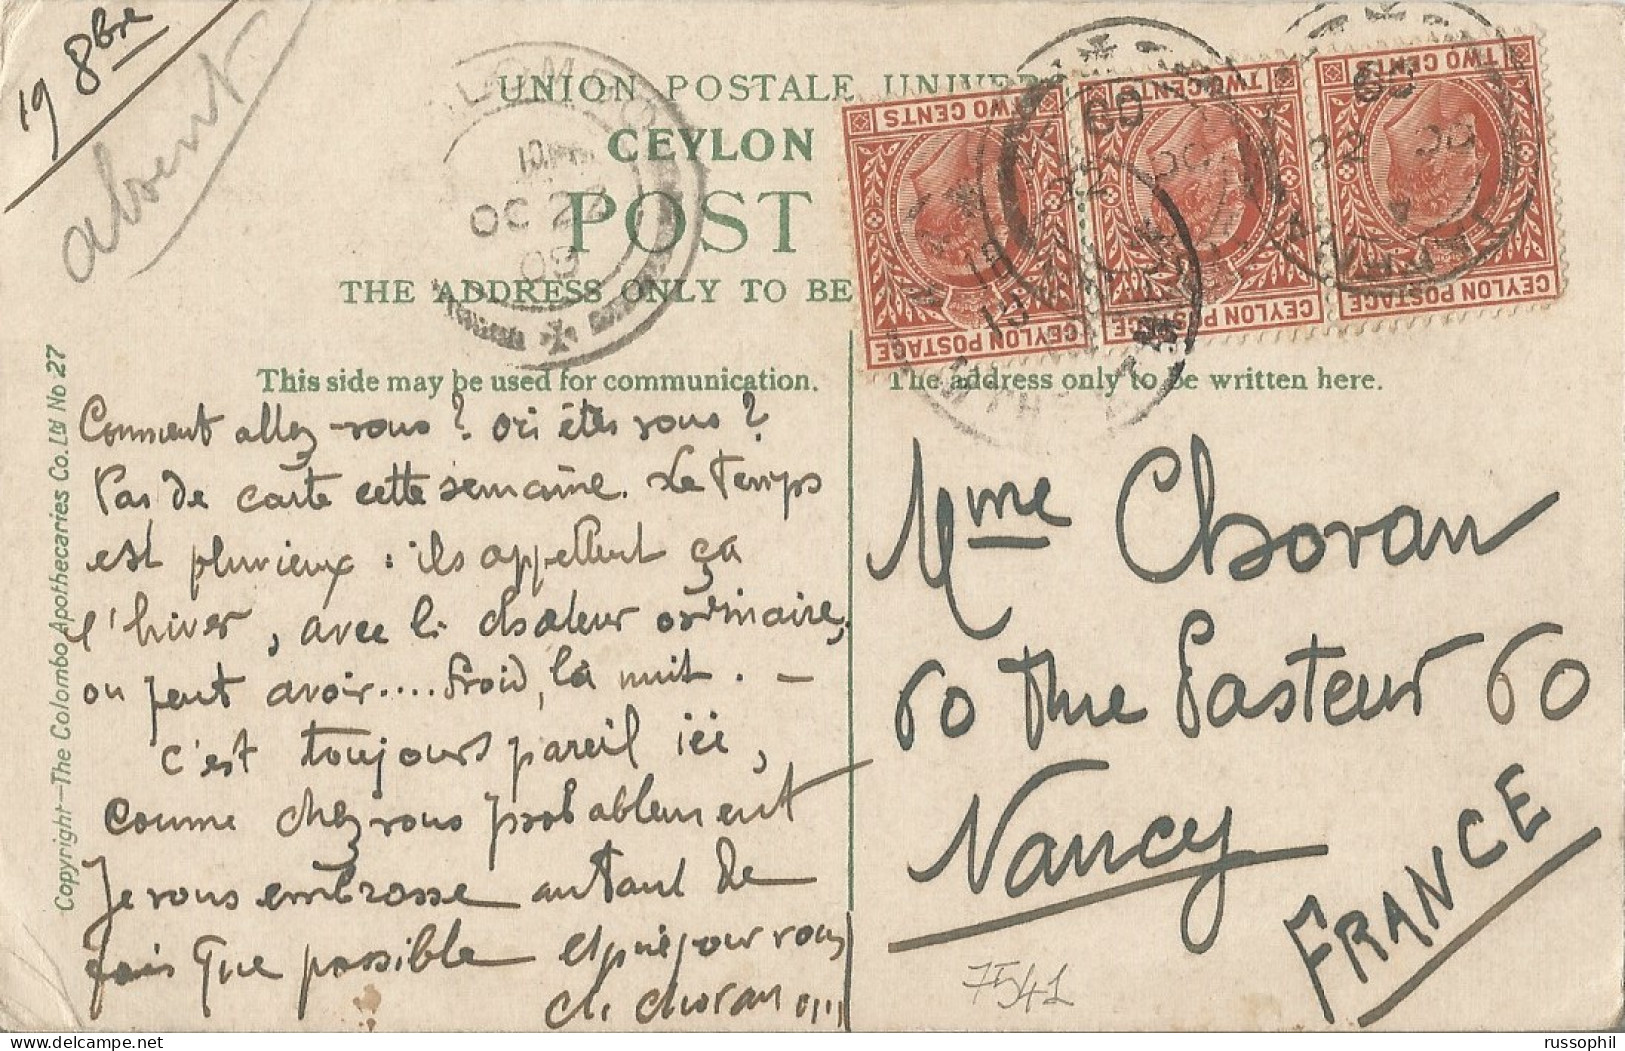 19 8bre
absent
UNION POSTALE UNIVER
CEYLON
POST
THE ADDRESS ONLY TO BE
COLOMBO
OC 22
09
TWO CENTS
CEYLON POSTAGE
TWO CENTS
CEYLON POSTAGE
TWO CENTS
CEYLON POSTAGE
This side may be used for communication.
The address only to be written here.
Copyright—The Colombo Apothecaries Co. Ltd No 27
Comment allez-vous? où êtes vous?
Pas de carte cette semaine. Le temps
est pluvieux : ils appellent ça
l'hiver, avec la chaleur ordinaire,
on peut avoir.... froid, la nuit. —
c'est toujours pareil ici,
comme chez vous probablement
Je vous embrasse autant de
fois que possible et pour vous
Ch. Choran
Mme Choran
60 Rue Pasteur 60
Nancy
FRANCE
7541
russophil